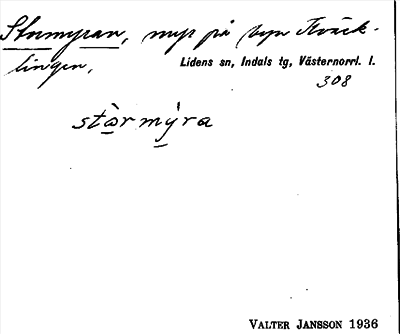 Stormyran, myr på byn Kväck-
lingen,
Lidens sn, Indals tg, Västernorrl. l.
308
stòrmỳra
VALTER JANSSON 1936